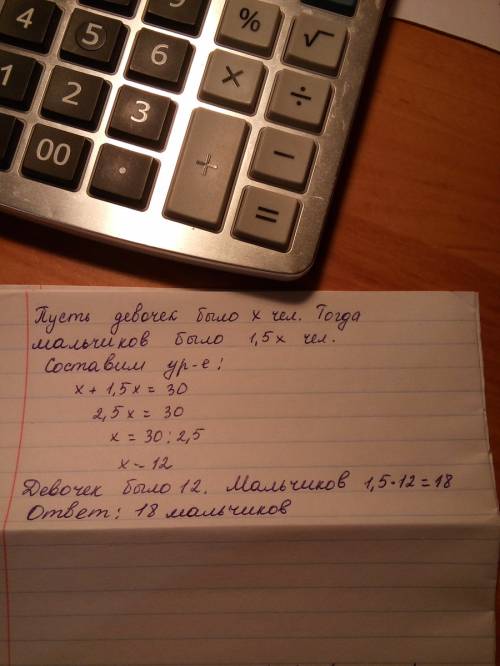 4 5 9 % √
1 2 6 × ÷
00 3 + −
. =
Пусть девочек было x чел. Тогда
мальчиков было 1,5x чел.
Составим ур-е:
x + 1,5x = 30
2,5x = 30
x = 30 : 2,5
x = 12
Девочек было 12. Мальчиков 1,5·12=18
Ответ: 18 мальчиков